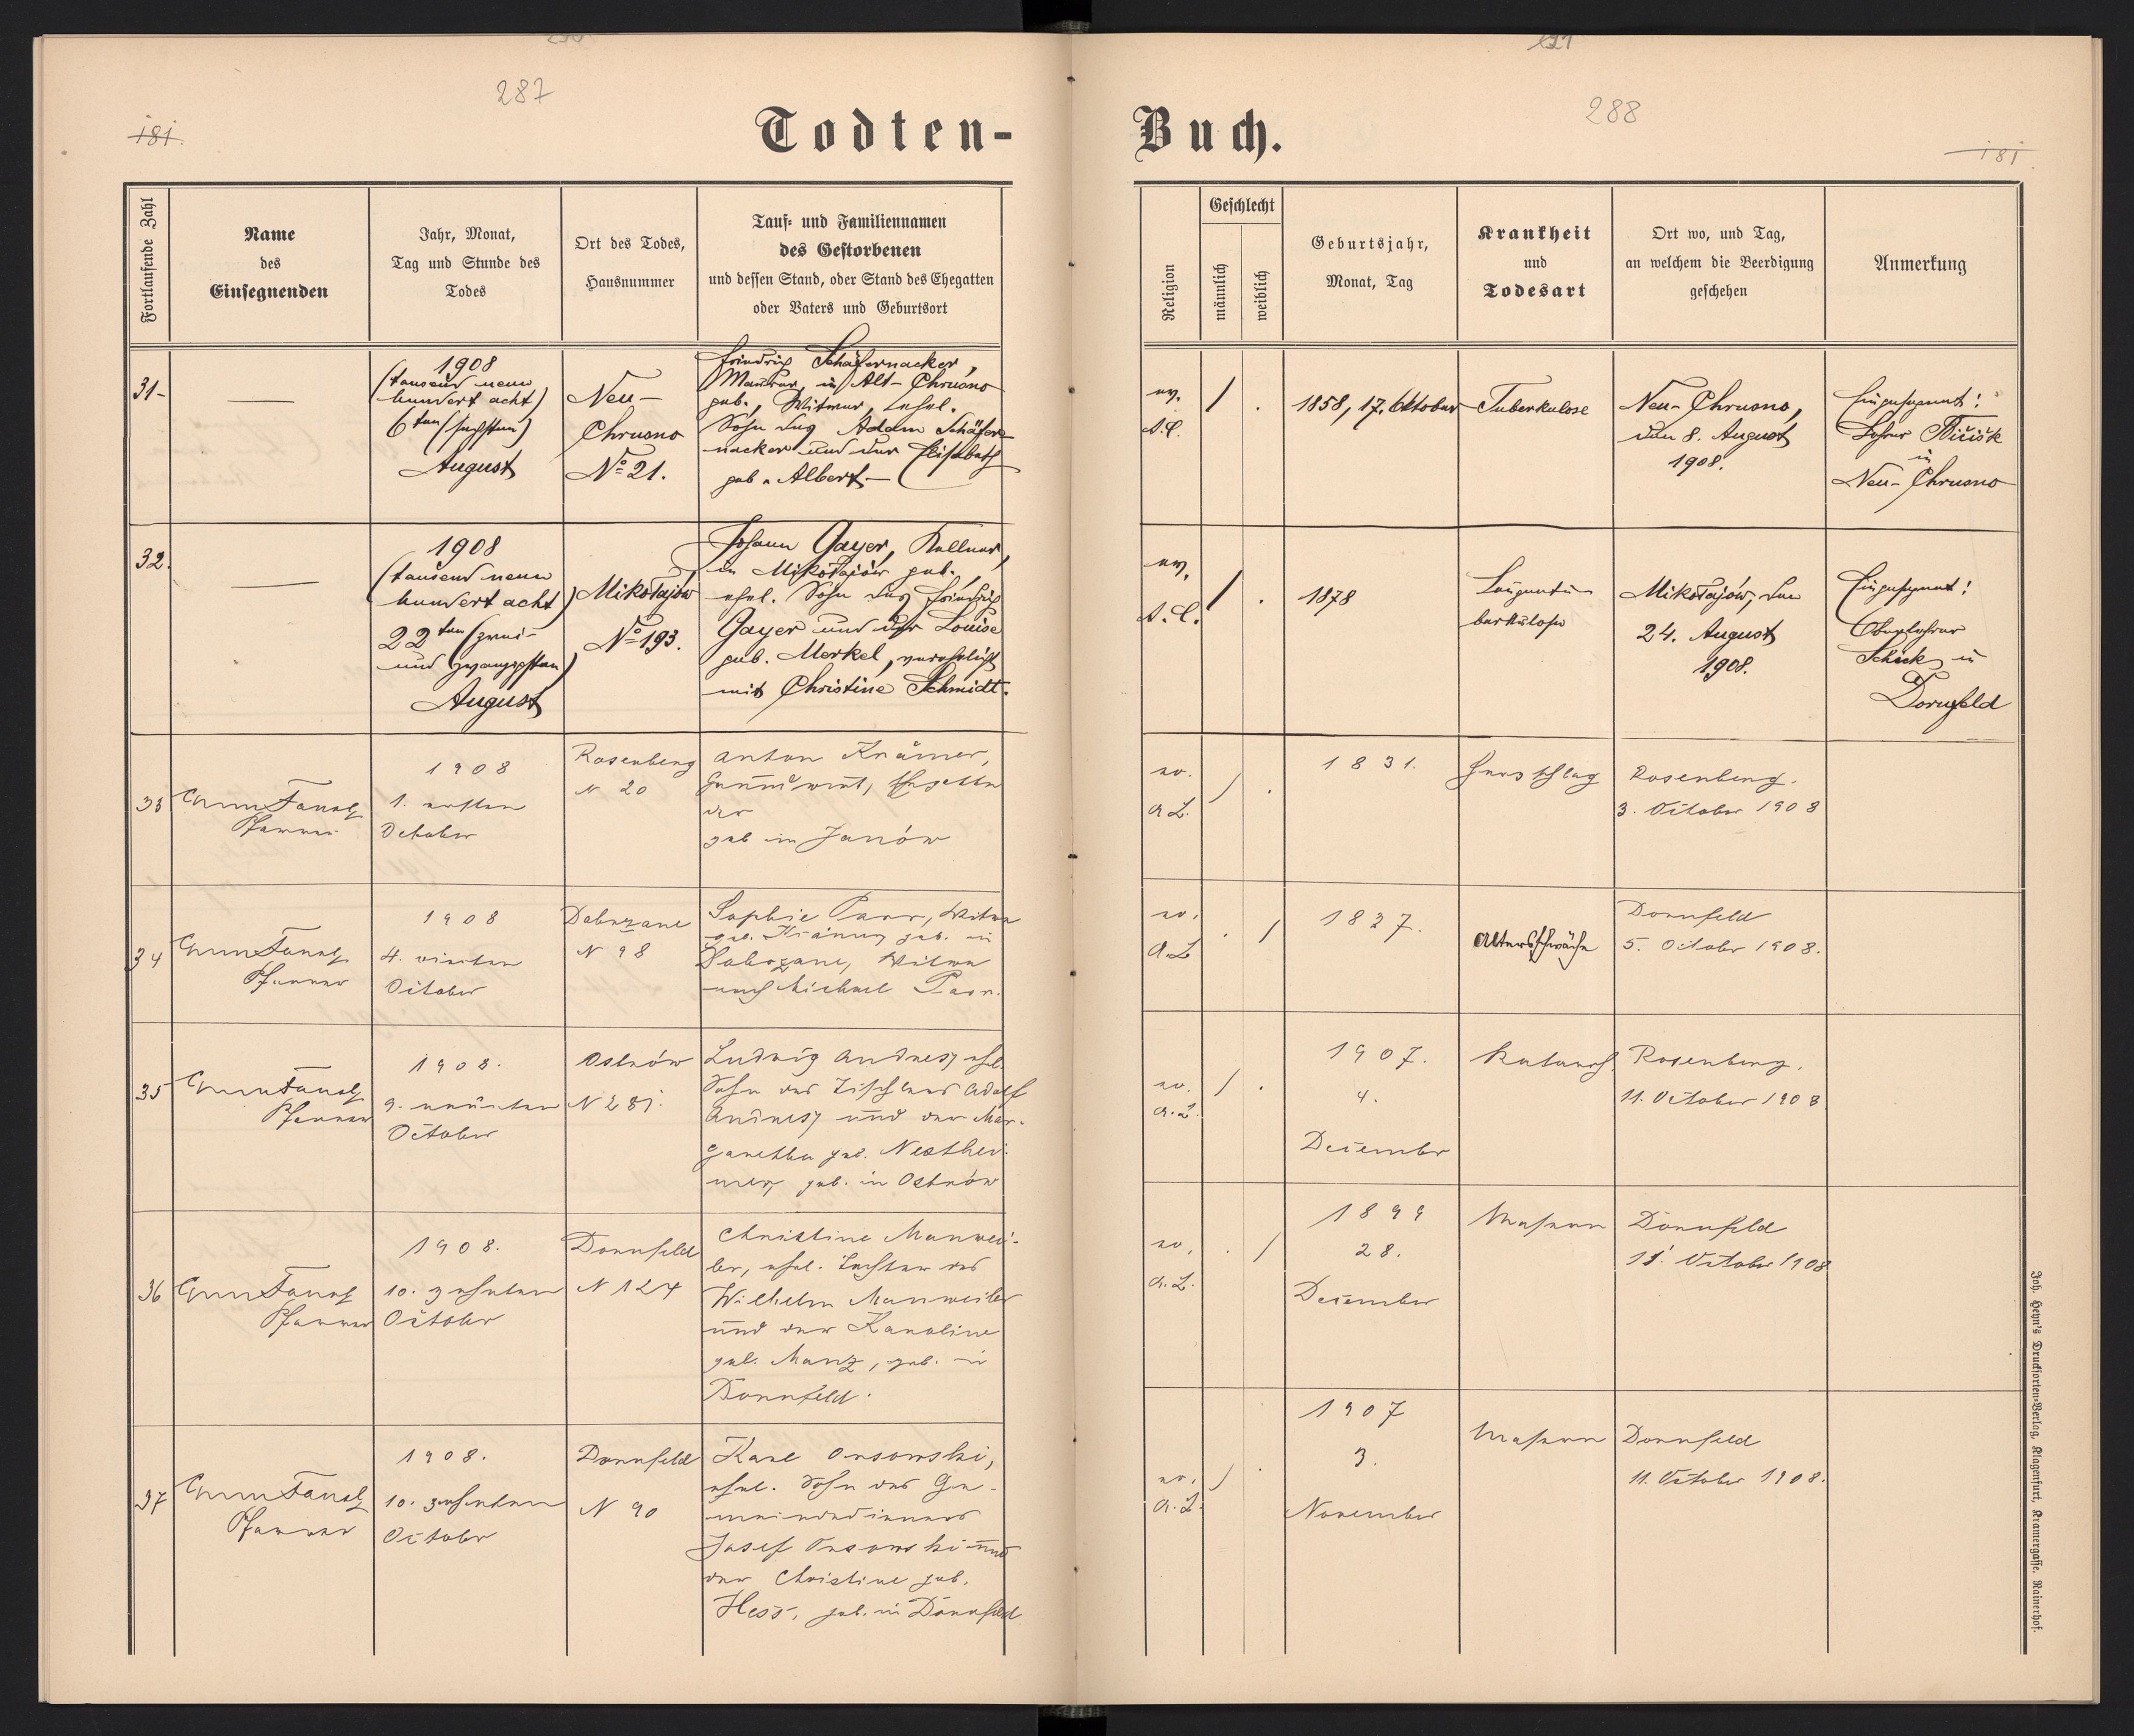 287
181.
Todten-
Fortlaufende Zahl
Name
des
Einsegnenden
Jahr, Monat,
Tag und Stunde des
Todes
Ort des Todes,
Hausnummer
Tauf- und Familiennamen
des Gestorbenen
und dessen Stand, oder Stand des Ehegatten
oder Vaters und Geburtsort
31-
1908
(tausend neun
hundert acht)
6ten (sechsten)
August
Neu-
Chrusno
No 21.
Friedrich Schäfernacker,
Maurer, in Alt-Chrusno
geb., Witwer, ehel.
Sohn des Adam Schäfer-
nacker und der Elisabeth
geb. Albert.
32.
1908
(tausend neun
hundert acht)
22ten (zwei-
und zwanzigsten)
August
Mikołajów
No 193.
Johann Gayer, Kellner,
in Mikołajów geb.
ehel. Sohn des Friedrich
Gayer und der Louise
geb. Merkel, verehelicht
mit Christine Schmidt.
33
Pfarrer
1908
1. ersten
October
Rosenberg
N 20
Anton Krämer,
Grundwirt, Ehegatte
der
geb in Janów
34
Pfarrer
1908
4. vierten
October
N 98
Sophie Parr, Witwe
geb. Krämer geb. in
Witwe
nach Michael Parr.
35
Pfarrer
1908.
9. neunten
October
Ostrów
N 281.
Ludwig Andres, ehel.
Sohn des Tischlers Adolf
Andres, und der Mar-
garetha geb. Nesthei-
mer, geb. in Ostrów
36
Pfarrer
1908.
10. zehnten
October
Dornfeld
N 124
Christine Manwei-
ler, ehel. Tochter des
Wilhelm Manweiler
und der Karoline
geb. Manz, geb. in
Dornfeld.
37
Pfarrer
1908.
10. zehnten
October
Dornfeld
N 90
Karl Orsowski,
ehel. Sohn des Ge-
meindedieners
Josef Orsowski und
der Christine geb.
Hess, geb. in Dornfeld
288
181
Buch.
Religion
Geschlecht
männlich
weiblich
Geburtsjahr,
Monat, Tag
Krankheit
und
Todesart
Ort wo, und Tag,
an welchem die Beerdigung
geschehen
Anmerkung
ev.
A.C.
/ .
1858, 17. Oktober
Tuberkulose
Neu-Chrusno,
den 8. August
1908.
Eingesegnet:
Lehrer
in
Neu-Chrusno
ev.
A.C.
/ .
1878
Lungentu-
berkulose
Mikołajów, den
24. August
1908.
Eingesegnet:
Oberlehrer
Schick in
Dornfeld
ev.
A.L.
/ .
1831.
Herzschlag
Rosenberg.
3. October 1908
ev.
A.L
. /
1827.
Altersschwäche
Dornfeld
5. October 1908.
ev.
A.L.
/ .
1907.
4.
December
Katarrh
Rosenberg.
11. October 1908
ev.
A.L.
. /
1899
28.
December
Masern
Dornfeld
11. October 1908
ev.
A.L.
/ .
1907
3.
November
Masern
Dornfeld
11. October 1908.
Joh. Heyn's Drucksorten-Verlag, Klagenfurt, Kramergasse, Rainerhof.